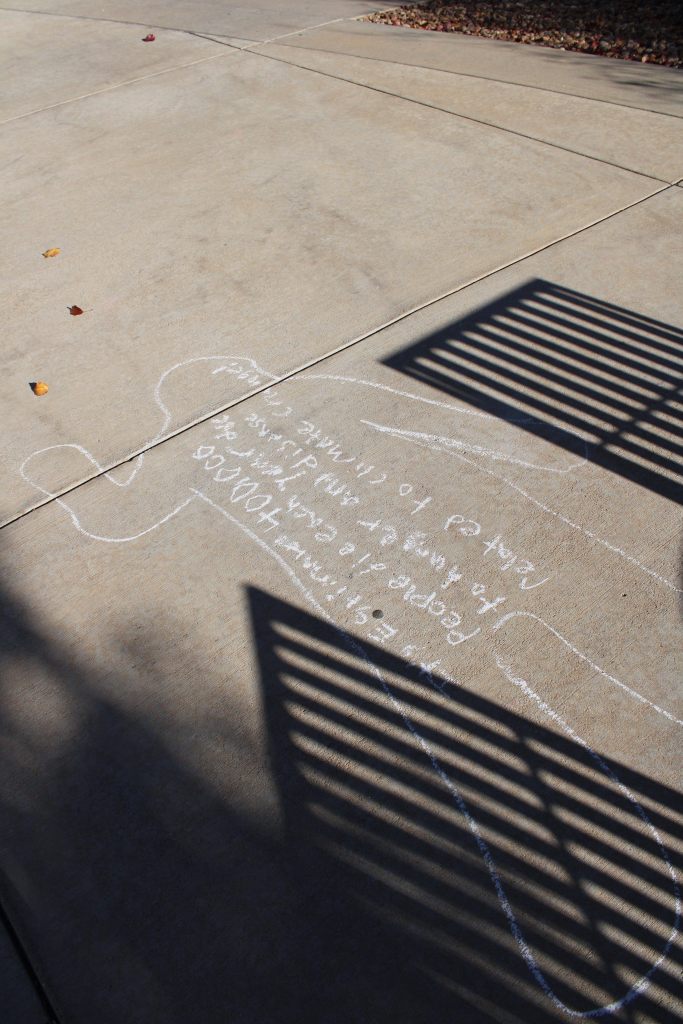 Its Estimated 400,000
People die each Year due
to hunger and disease
related to climate change